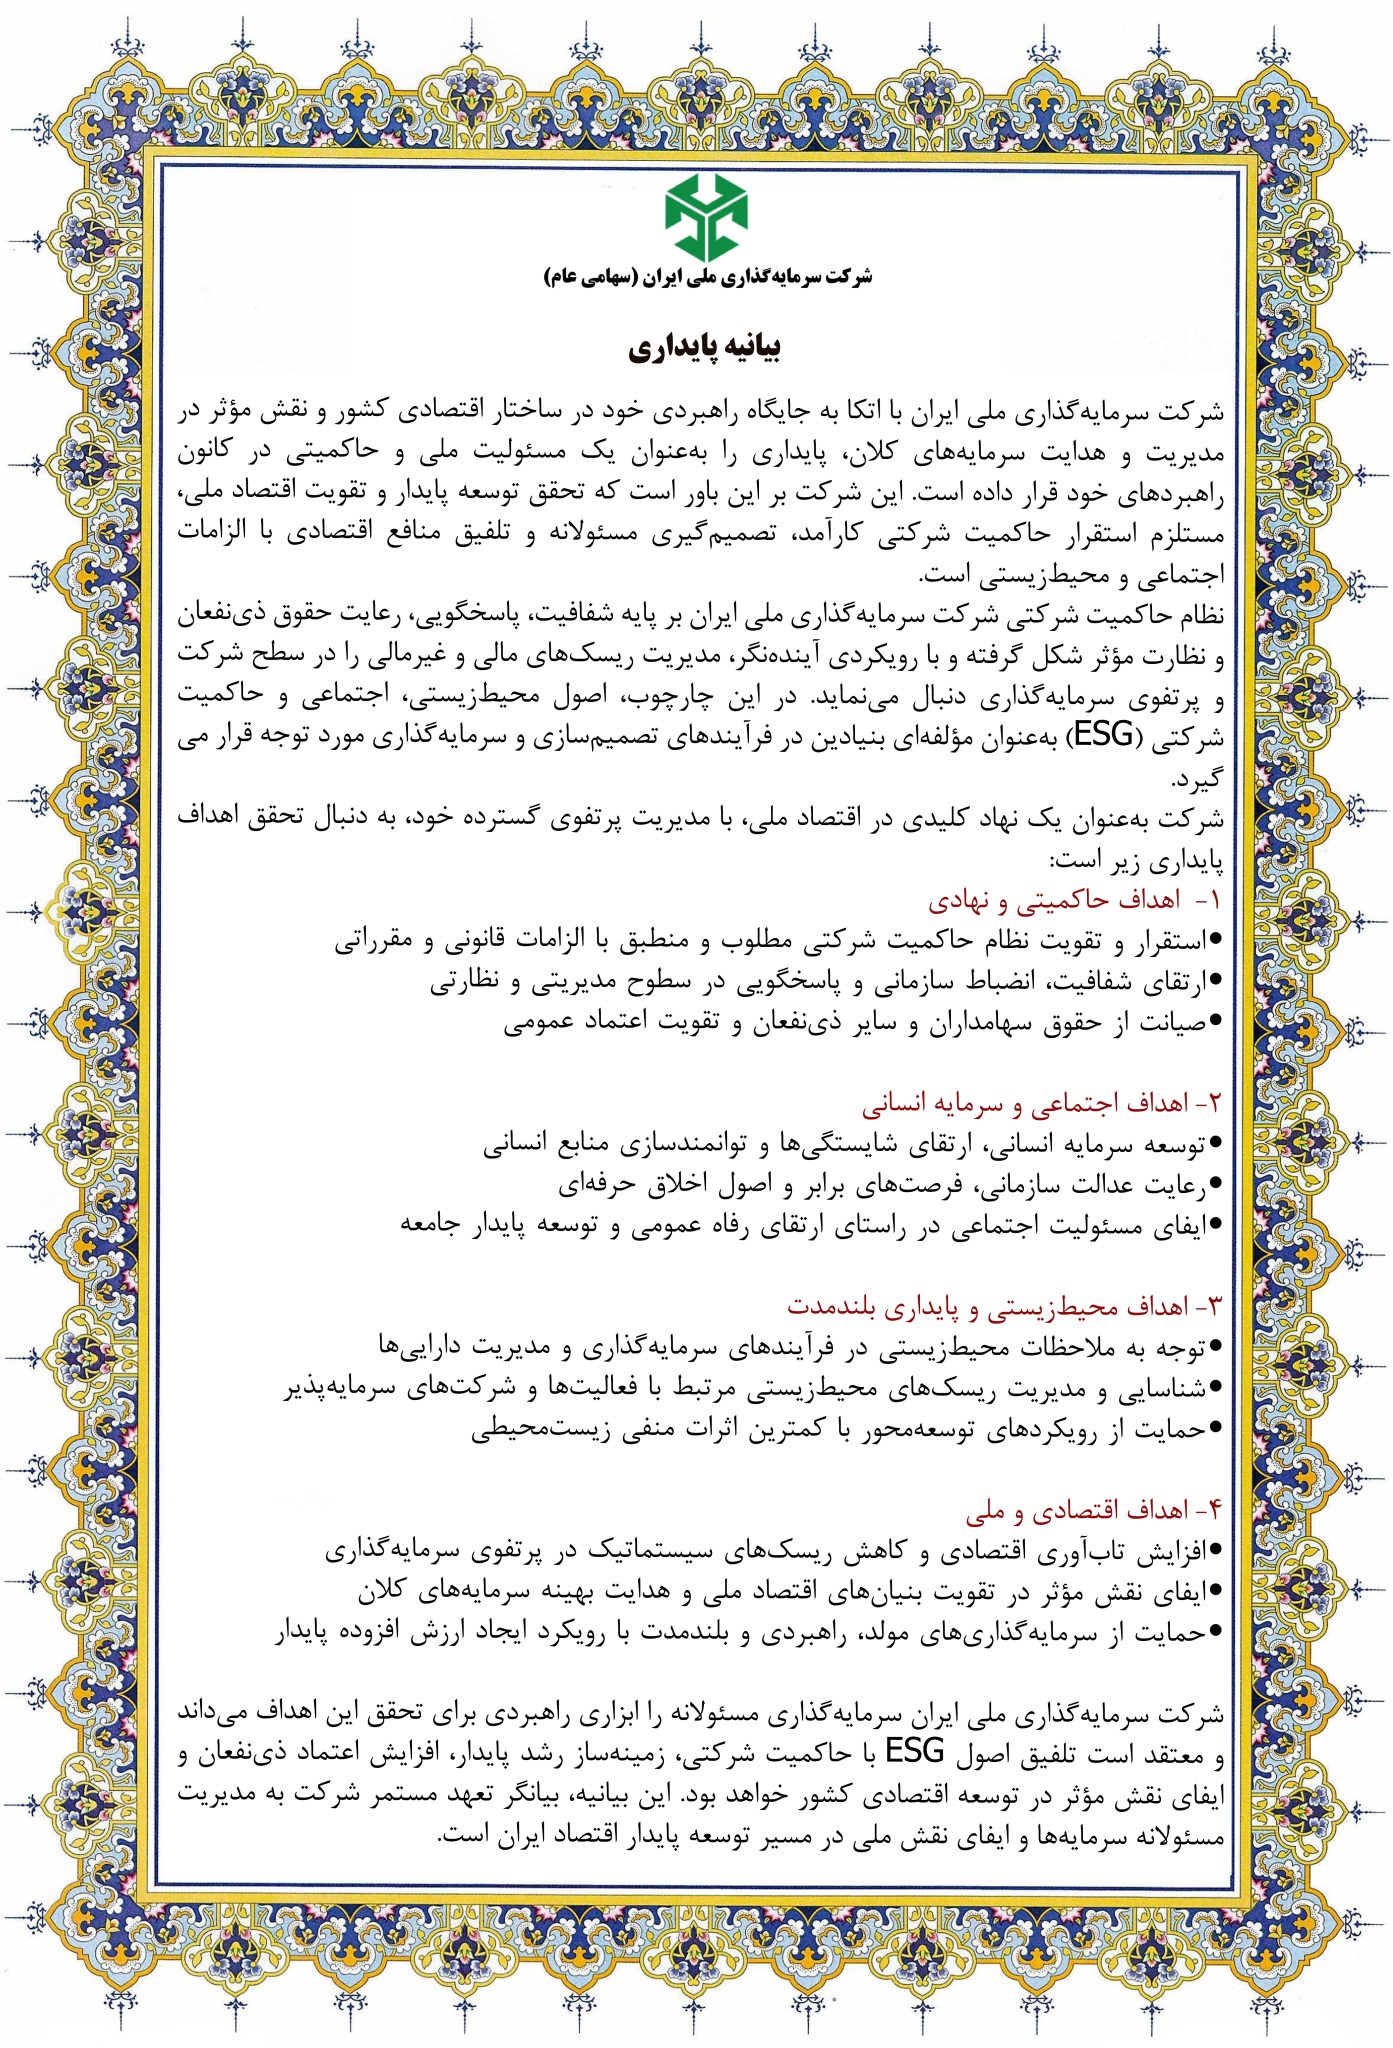 شرکت سرمایه‌گذاری ملی ایران (سهامی عام)
بیانیه پایداری
شرکت سرمایه‌گذاری ملی ایران با اتکا به جایگاه راهبردی خود در ساختار اقتصادی کشور و نقش مؤثر در
مدیریت و هدایت سرمایه‌های کلان، پایداری را به‌عنوان یک مسئولیت ملی و حاکمیتی در کانون
راهبردهای خود قرار داده است. این شرکت بر این باور است که تحقق توسعه پایدار و تقویت اقتصاد ملی،
مستلزم استقرار حاکمیت شرکتی کارآمد، تصمیم‌گیری مسئولانه و تلفیق منافع اقتصادی با الزامات
اجتماعی و محیط‌زیستی است.
نظام حاکمیت شرکتی شرکت سرمایه‌گذاری ملی ایران بر پایه شفافیت، پاسخگویی، رعایت حقوق ذی‌نفعان
و نظارت مؤثر شکل گرفته و با رویکردی آینده‌نگر، مدیریت ریسک‌های مالی و غیرمالی را در سطح شرکت
و پرتفوی سرمایه‌گذاری دنبال می‌نماید. در این چارچوب، اصول محیط‌زیستی، اجتماعی و حاکمیت
شرکتی (ESG) به‌عنوان مؤلفه‌ای بنیادین در فرآیندهای تصمیم‌سازی و سرمایه‌گذاری مورد توجه قرار می
گیرد.
شرکت به‌عنوان یک نهاد کلیدی در اقتصاد ملی، با مدیریت پرتفوی گسترده خود، به دنبال تحقق اهداف
پایداری زیر است:
۱- اهداف حاکمیتی و نهادی
•استقرار و تقویت نظام حاکمیت شرکتی مطلوب و منطبق با الزامات قانونی و مقرراتی
•ارتقای شفافیت، انضباط سازمانی و پاسخگویی در سطوح مدیریتی و نظارتی
•صیانت از حقوق سهامداران و سایر ذی‌نفعان و تقویت اعتماد عمومی
۲- اهداف اجتماعی و سرمایه انسانی
•توسعه سرمایه انسانی، ارتقای شایستگی‌ها و توانمندسازی منابع انسانی
•رعایت عدالت سازمانی، فرصت‌های برابر و اصول اخلاق حرفه‌ای
•ایفای مسئولیت اجتماعی در راستای ارتقای رفاه عمومی و توسعه پایدار جامعه
۳- اهداف محیط‌زیستی و پایداری بلندمدت
•توجه به ملاحظات محیط‌زیستی در فرآیندهای سرمایه‌گذاری و مدیریت دارایی‌ها
•شناسایی و مدیریت ریسک‌های محیط‌زیستی مرتبط با فعالیت‌ها و شرکت‌های سرمایه‌پذیر
•حمایت از رویکردهای توسعه‌محور با کمترین اثرات منفی زیست‌محیطی
۴- اهداف اقتصادی و ملی
•افزایش تاب‌آوری اقتصادی و کاهش ریسک‌های سیستماتیک در پرتفوی سرمایه‌گذاری
•ایفای نقش مؤثر در تقویت بنیان‌های اقتصاد ملی و هدایت بهینه سرمایه‌های کلان
•حمایت از سرمایه‌گذاری‌های مولد، راهبردی و بلندمدت با رویکرد ایجاد ارزش افزوده پایدار
شرکت سرمایه‌گذاری ملی ایران سرمایه‌گذاری مسئولانه را ابزاری راهبردی برای تحقق این اهداف می‌داند
و معتقد است تلفیق اصول ESG با حاکمیت شرکتی، زمینه‌ساز رشد پایدار، افزایش اعتماد ذی‌نفعان و
ایفای نقش مؤثر در توسعه اقتصادی کشور خواهد بود. این بیانیه، بیانگر تعهد مستمر شرکت به مدیریت
مسئولانه سرمایه‌ها و ایفای نقش ملی در مسیر توسعه پایدار اقتصاد ایران است.